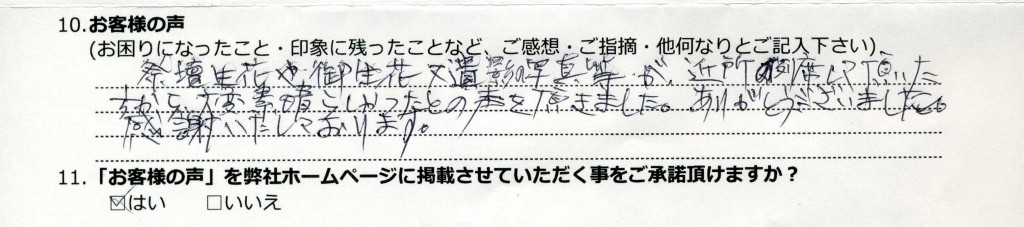 10.お客様の声
(お困りになったこと・印象に残ったことなど、ご感想・ご指摘・他何なりとご記入下さい)
祭壇生花や御生花又遺影の写真等が、近所の御席して頂いた
方から、大変素晴らしかったとの声を頂きました。ありがとうございました。
感謝いたしております。
11.「お客様の声」を弊社ホームページに掲載させていただく事をご承諾頂けますか？
☑はい　□いいえ